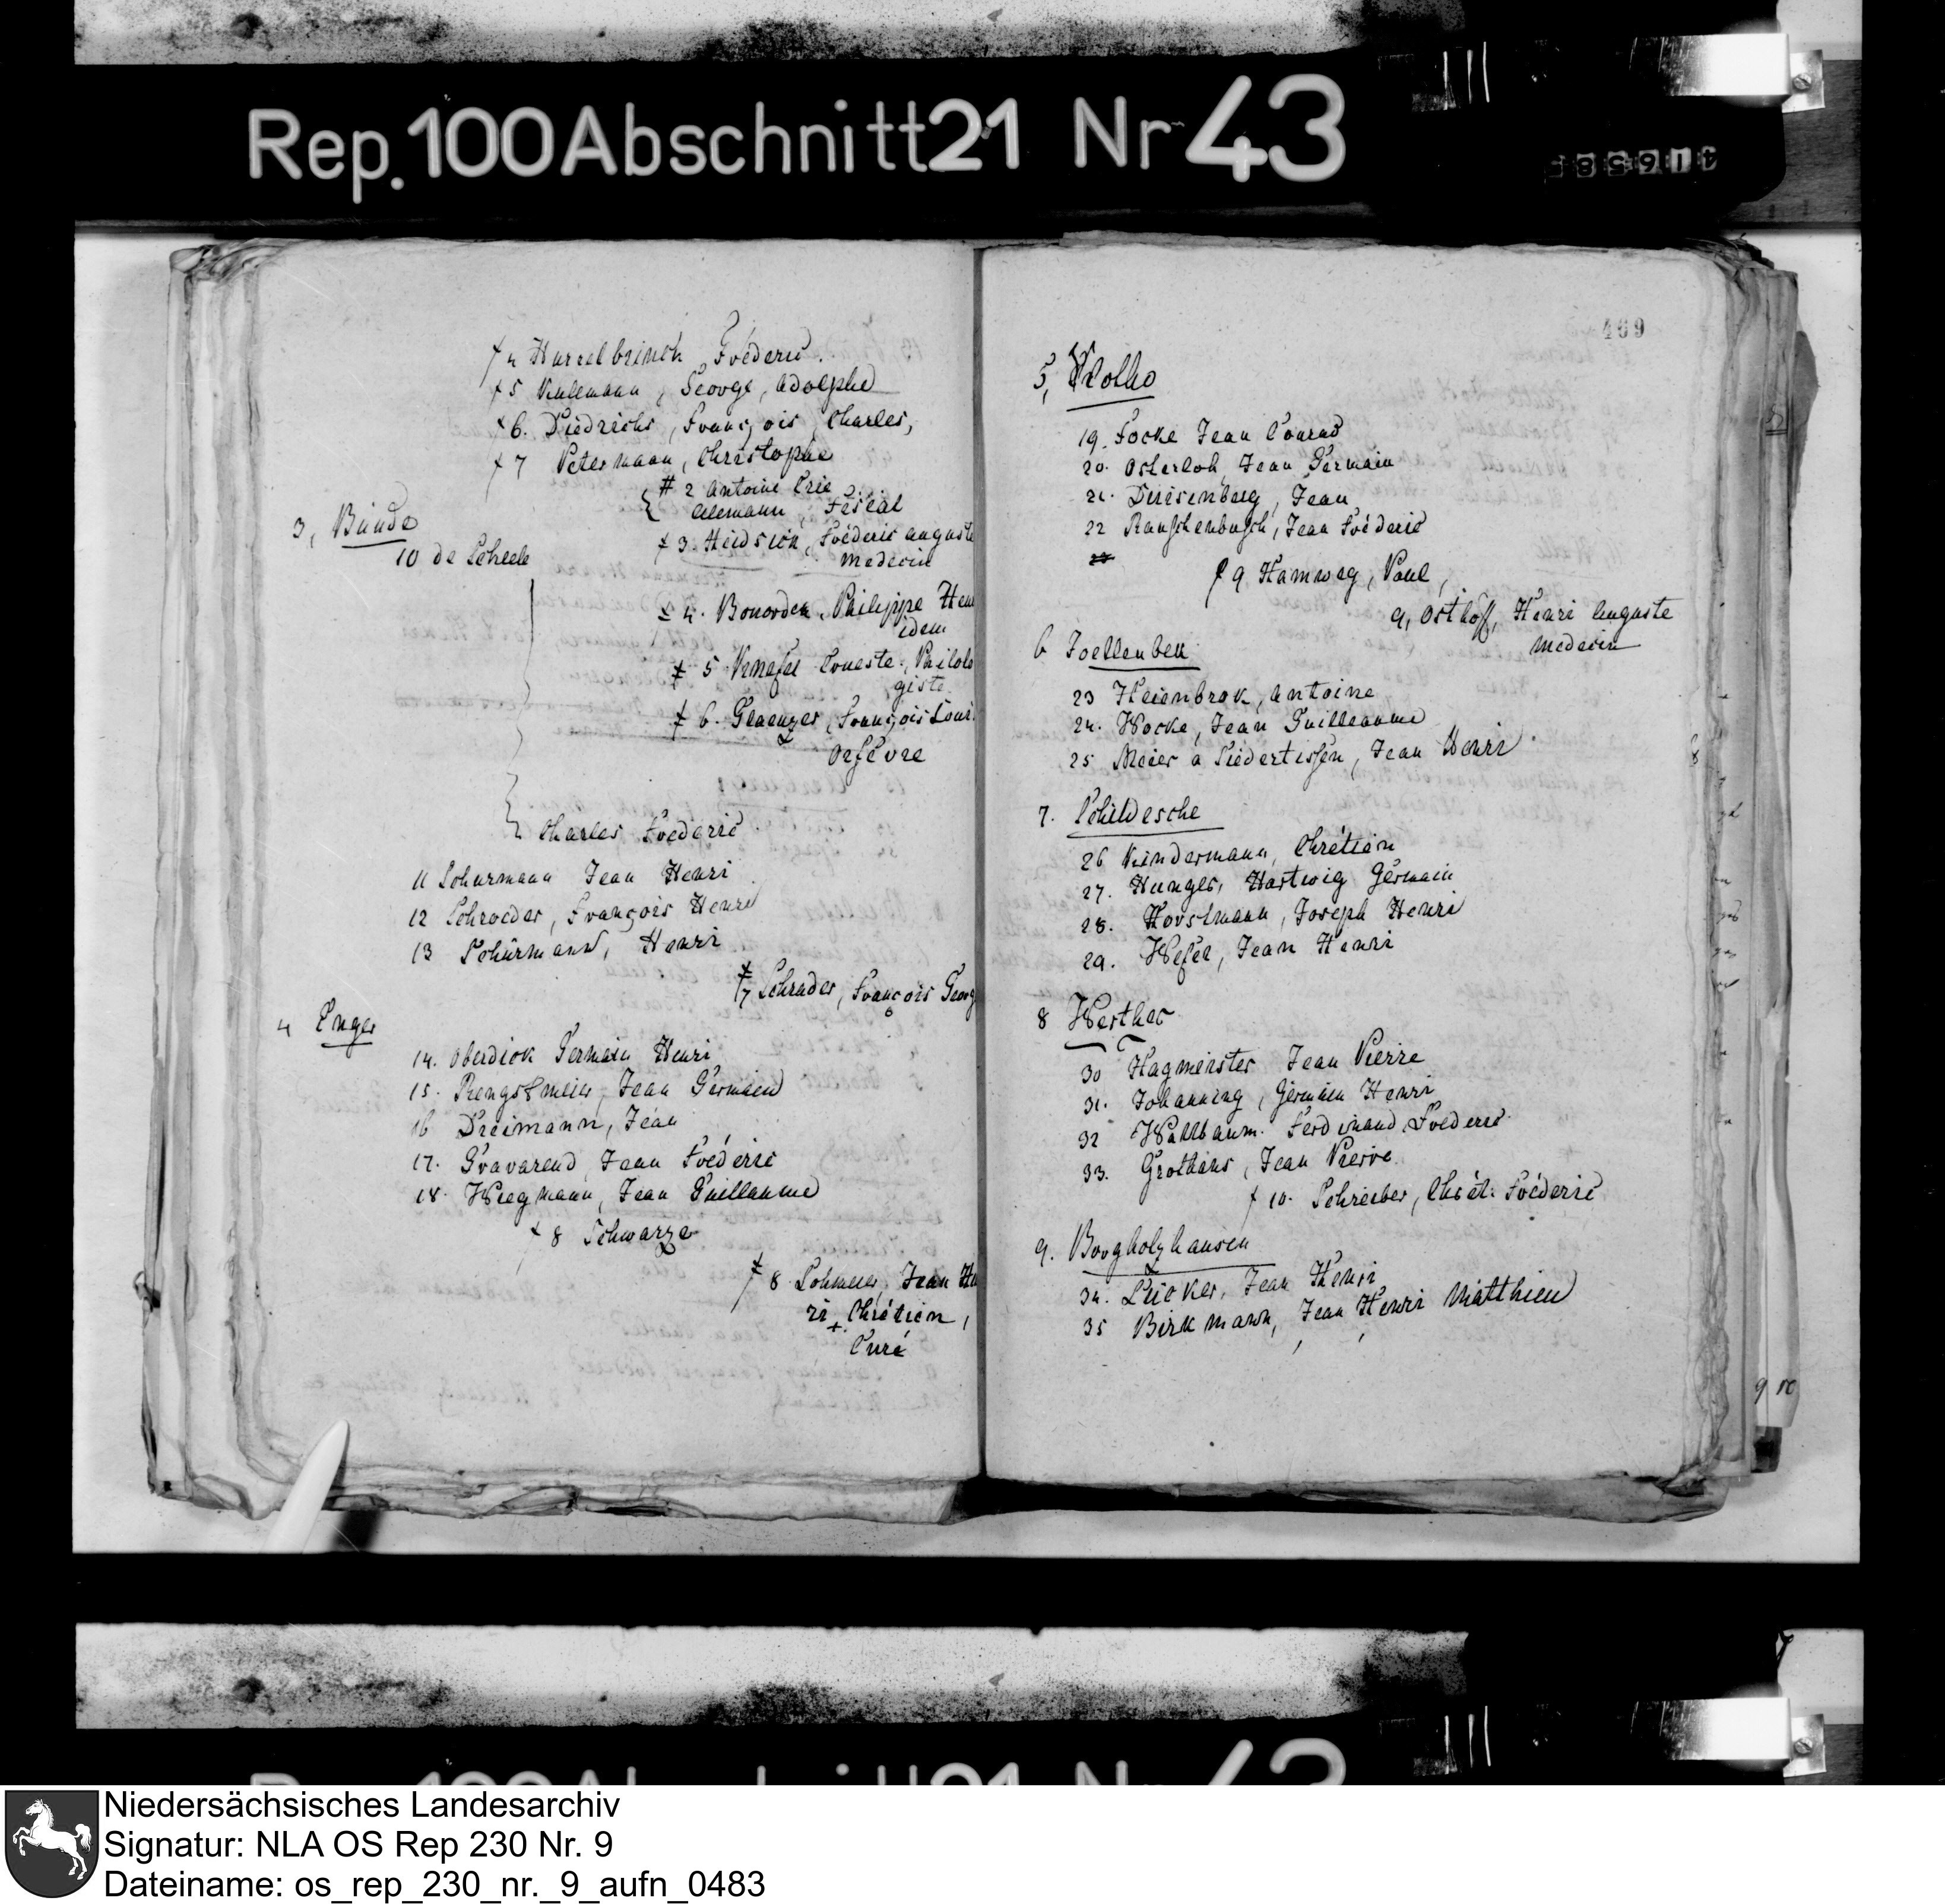 Rep. 100 Abschnitt 21 Nr 43
41658
4 Hurrelbrinck, Fréderic.
5 Kulemann, George, Adolphe
6. Diedrichs, François, Charles,
7 Petermann, Christophe
2 Antoine
Clemann, Feseal
3, Bünde
3. Heidsick, Fréderic auguste
medecin
10 de Scheele
4. Bonorden, Philippe Hen
idem
5 Philolo
giste.
6. François Loui
Orfèvre
Charles Fréderic
11 Schurmann Jean Henri
12 Schroeder, François Henri
13 Schürmann, Henri
7 Schrader, François Georg
4 Enger
14. Oberdiok Germain Henri
15. Rengstmeier, Jean Germain
16 Dreimann, Jean
17. Gravarend Jean Fréderic
18. Wiegmann, Jean Guillaume
8 Schwarze
8. Lohmeier, Jean He
ri Chrétien,
Curé
409
5, Vlotho
19. Focke Jean Conrad
20. Osterloh, Jean Germain
21. Jean
22 Rauschenbusch, Jean Fréderic
9 Hamweg, Paul,
9, Osthoff, Henri Auguste
medecin
6 Joellenbek
23 Heienbrok, Antoine
24. Wocke, Jean Guilleaume
25 Meier a Jean Henri
7. Schildesche
26 Kindermann, Chrétien
27. Hunger, Hartwig Germain
28. Horstmann, Joseph Henri
29. Wefel, Jean Henri
8 Werther
30 Hagmeister Jean Pierre
31. Johanning, Germain Henri
32 Wallbaum. Ferdinand Fréderic
33. Grothaus, Jean Pierre.
10. Schreiber, Chrét: Fréderic
9. Borgholzhausen
34. Lücker, Jean Henri
35 Birkmann, Jean Henri Matthieu
Niedersächsisches Landesarchiv
Signatur: NLA OS Rep 230 Nr. 9
Dateiname: os_rep_230_nr._9_aufn_0483